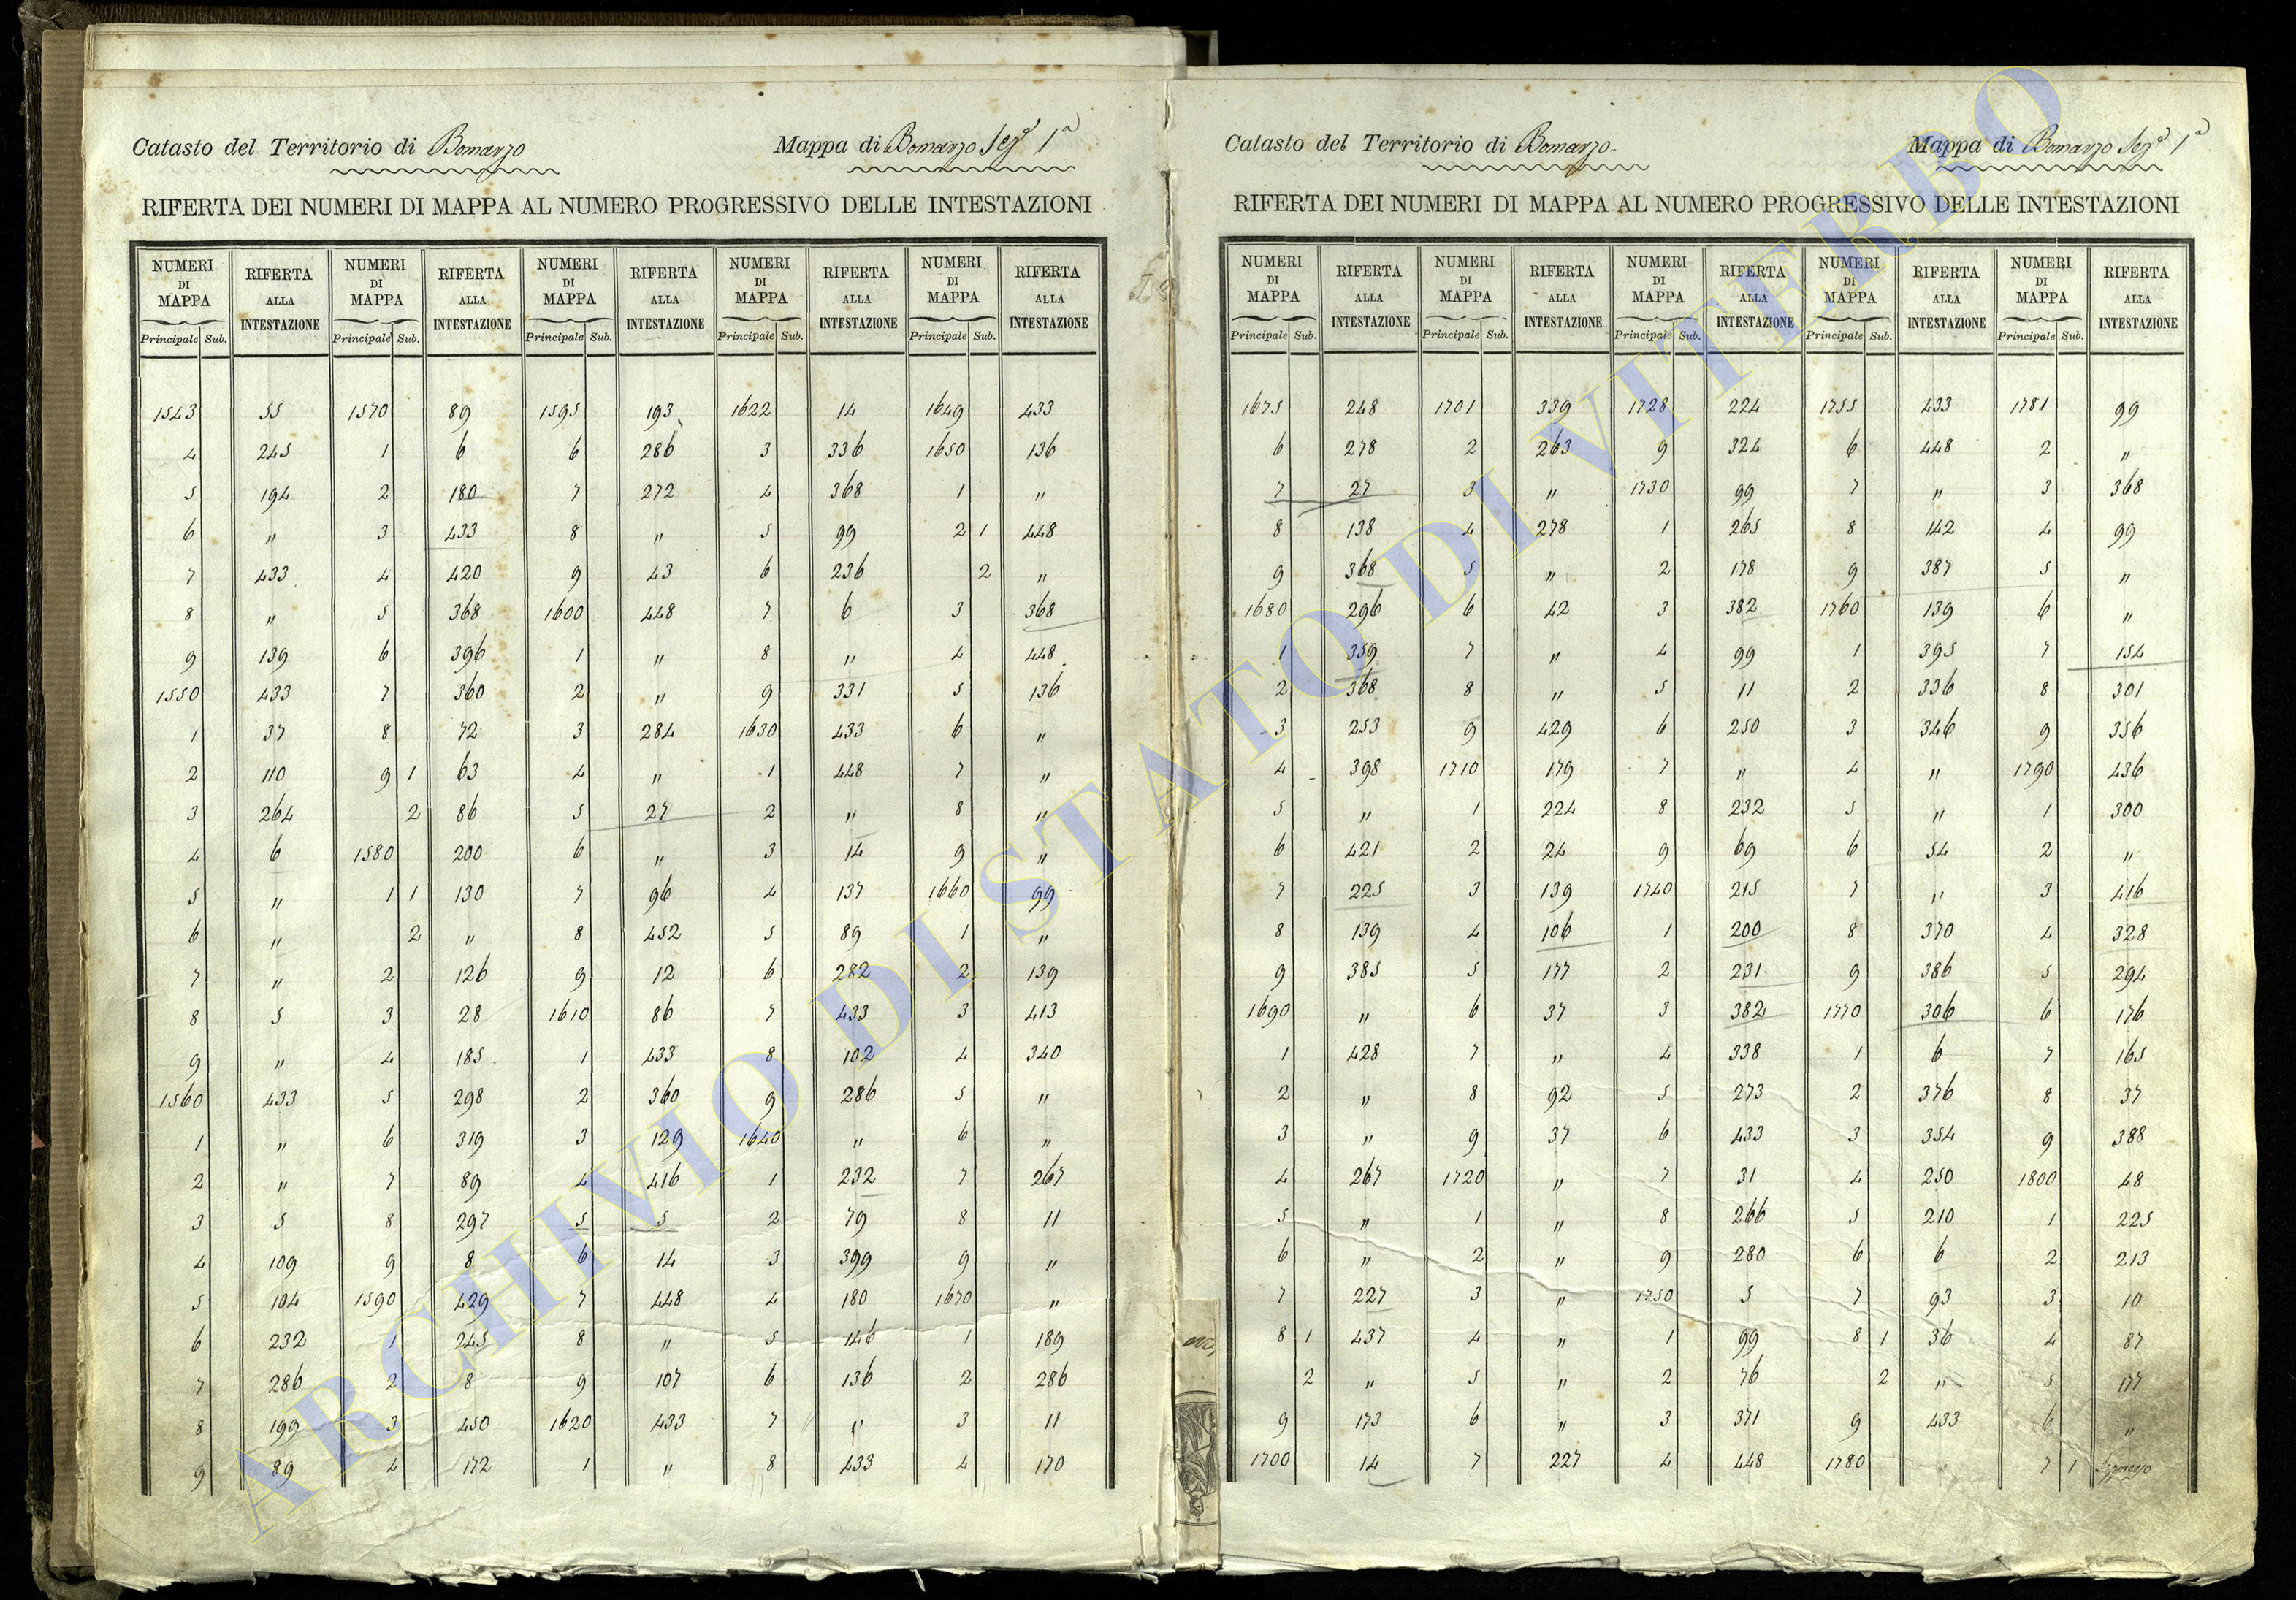 Catasto del Territorio di Bomarzo Mappa di Bomarzo Sezᵉ 1ª
RIFERTA DEI NUMERI DI MAPPA AL NUMERO PROGRESSIVO DELLE INTESTAZIONI
NUMERI DI MAPPA RIFERTA ALLA INTESTAZIONE NUMERI DI MAPPA RIFERTA ALLA INTESTAZIONE NUMERI DI MAPPA RIFERTA ALLA INTESTAZIONE NUMERI DI MAPPA RIFERTA ALLA INTESTAZIONE NUMERI DI MAPPA RIFERTA ALLA INTESTAZIONE
Principale Sub. Principale Sub. Principale Sub. Principale Sub. Principale Sub.
1543 55 1570 89 1595 193 1622 14 1649 433
4 245 1 6 6 286 3 336 1650 136
5 194 2 180 7 272 4 368 1 "
6 " 3 433 8 " 5 99 2 1 448
7 433 4 420 9 43 6 236 2 "
8 " 5 368 1600 448 7 6 3 368
9 139 6 396 1 " 8 " 4 448
1550 433 7 360 2 " 9 331 5 136
1 37 8 72 3 284 1630 433 6 "
2 110 9 1 63 4 " 1 448 7 "
3 264 2 86 5 27 2 " 8 "
4 6 1580 200 6 " 3 14 9 "
5 " 1 1 130 7 96 4 137 1660 99
6 " 2 " 8 452 5 89 1 "
7 " 2 126 9 12 6 282 2 139
8 5 3 28 1610 86 7 433 3 413
9 " 4 185 1 433 8 102 4 340
1560 433 5 298 2 360 9 286 5 "
1 " 6 319 3 129 1640 " 6 "
2 " 7 89 4 416 1 232 7 267
3 5 8 297 5 5 2 79 8 11
4 109 9 8 6 14 3 399 9 "
5 104 1590 429 7 448 4 180 1670 "
6 232 1 245 8 " 5 146 1 189
7 286 2 8 9 107 6 136 2 286
8 199 3 450 1620 433 7 " 3 11
9 89 4 172 1 " 8 433 4 170
Catasto del Territorio di Bomarzo Mappa di Bomarzo Sezᵉ 1ª
RIFERTA DEI NUMERI DI MAPPA AL NUMERO PROGRESSIVO DELLE INTESTAZIONI
NUMERI DI MAPPA RIFERTA ALLA INTESTAZIONE NUMERI DI MAPPA RIFERTA ALLA INTESTAZIONE NUMERI DI MAPPA RIFERTA ALLA INTESTAZIONE NUMERI DI MAPPA RIFERTA ALLA INTESTAZIONE NUMERI DI MAPPA RIFERTA ALLA INTESTAZIONE
Principale Sub. Principale Sub. Principale Sub. Principale Sub. Principale Sub.
1675 248 1701 339 1728 224 1755 433 1781 99
6 278 2 263 9 324 6 448 2 "
7 27 3 " 1730 99 7 " 3 368
8 138 4 278 1 265 8 142 4 99
9 368 5 " 2 178 9 387 5 "
1680 296 6 42 3 382 1760 139 6 "
1 359 7 " 4 99 1 395 7 154
2 368 8 " 5 11 2 336 8 301
3 253 9 429 6 250 3 346 9 356
4 398 1710 179 7 " 4 " 1790 436
5 " 1 224 8 232 5 " 1 300
6 421 2 24 9 69 6 54 2 "
7 225 3 139 1740 215 7 " 3 416
8 139 4 106 1 200 8 370 4 328
9 385 5 177 2 231 9 386 5 294
1690 " 6 37 3 382 1770 306 6 176
1 428 7 " 4 338 1 6 7 165
2 " 8 92 5 273 2 376 8 37
3 " 9 37 6 433 3 354 9 388
4 267 1720 " 7 31 4 250 1800 48
5 " 1 " 8 266 5 210 1 225
6 " 2 " 9 280 6 6 2 213
7 227 3 " 1750 5 7 93 3 10
8 1 437 4 " 1 99 8 1 36 4 87
2 " 5 " 2 76 2 " 5 177
9 173 6 " 3 371 9 433 6 "
1700 14 7 227 4 448 1780 " 7 1
ARCHIVIO DI STATO DI VITERBO